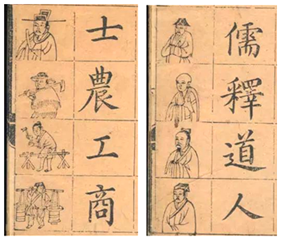 士
農
工
商
儒
釋
道
人